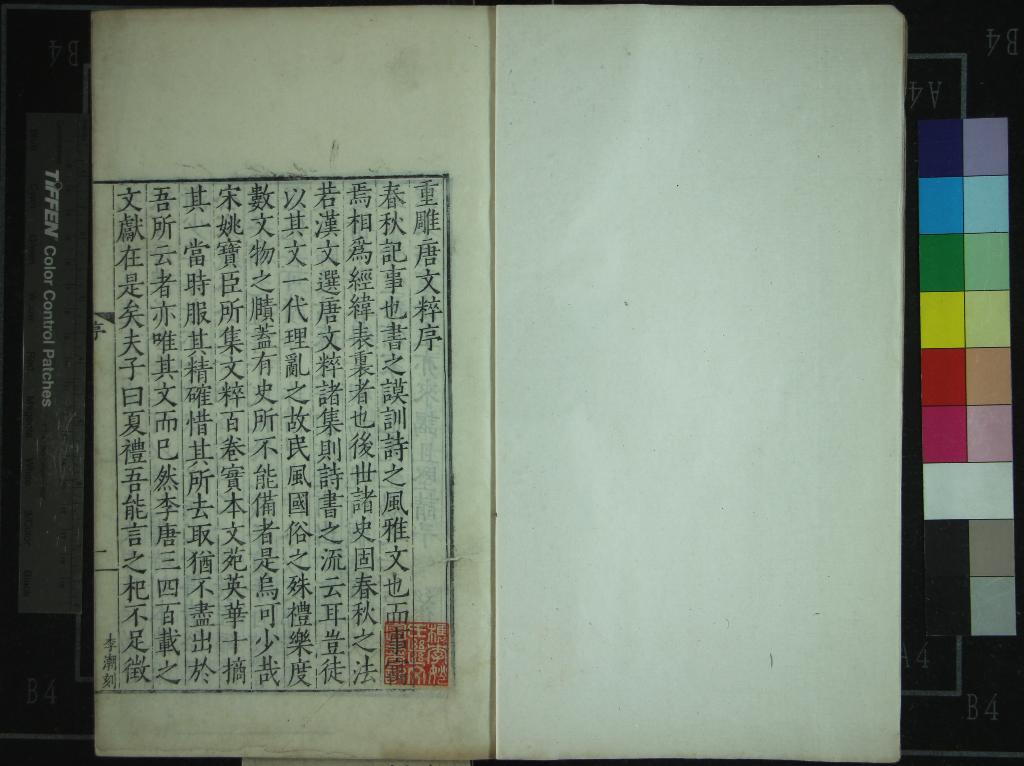 重雕唐文粹序
春秋記事也書之謨訓詩之風雅文也而事寓
焉相為經緯表裏者也後世諸史固春秋之法
若漢文選唐文粹諸集則詩書之流云耳豈徒
以其文一代理亂之故民風國俗之殊禮樂度
數文物之賾蓋有史所不能備者是烏可少哉
宋姚寶臣所集文粹百卷實本文苑英華十摘
其一當時服其精確惜其所去取猶不盡出於
吾所云者亦唯其文而已然李唐三四百載之
文獻在是矣夫子曰夏禮吾能言之杞不足徵
序
一
李潮刻
TIFFEN Color Control Patches
B4
B4
A4
A4
B4
B4